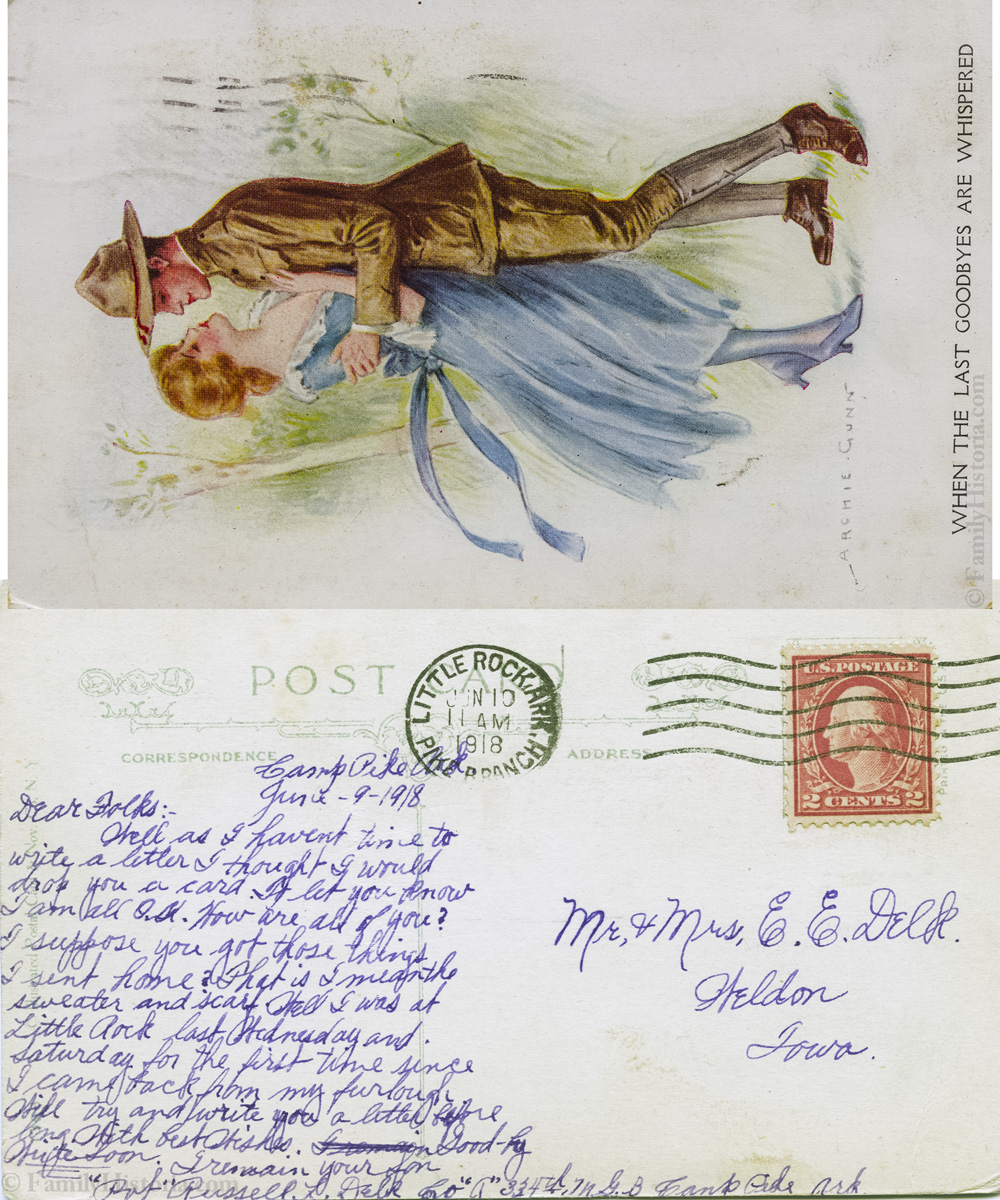 WHEN THE LAST GOODBYES ARE WHISPERED
ARCHIE GUNN
© FamilyHistoria.com
POST CARD
CORRESPONDENCE
ADDRESS
LITTLE ROCK, ARK.
JUN 10
11 AM
1918
PIKE BRANCH
U.S. POSTAGE
2 CENTS 2
Camp Pike Ark
June-9-1918
Dear Folks:-
Well as I havent time to
write a letter I thought I would
drop you a card. To let you know
I am all O.K. How are all of you?
I suppose you got those things
I sent home? That is I mean the
sweater and scarf. Well I was at
Little Rock last Wednesday and
Saturday for the first time since
I came back from my furlough
Will try and write you a letter before
long. With best Wishes. Good-by
Write Soon. I remain your Son
"Pvt" Russell L. Delk Co "A" 334th. M.G.B Camp Pike Ark
Mr. & Mrs. E. E. Delk.
Weldon
Iowa.
© FamilyHistoria.com